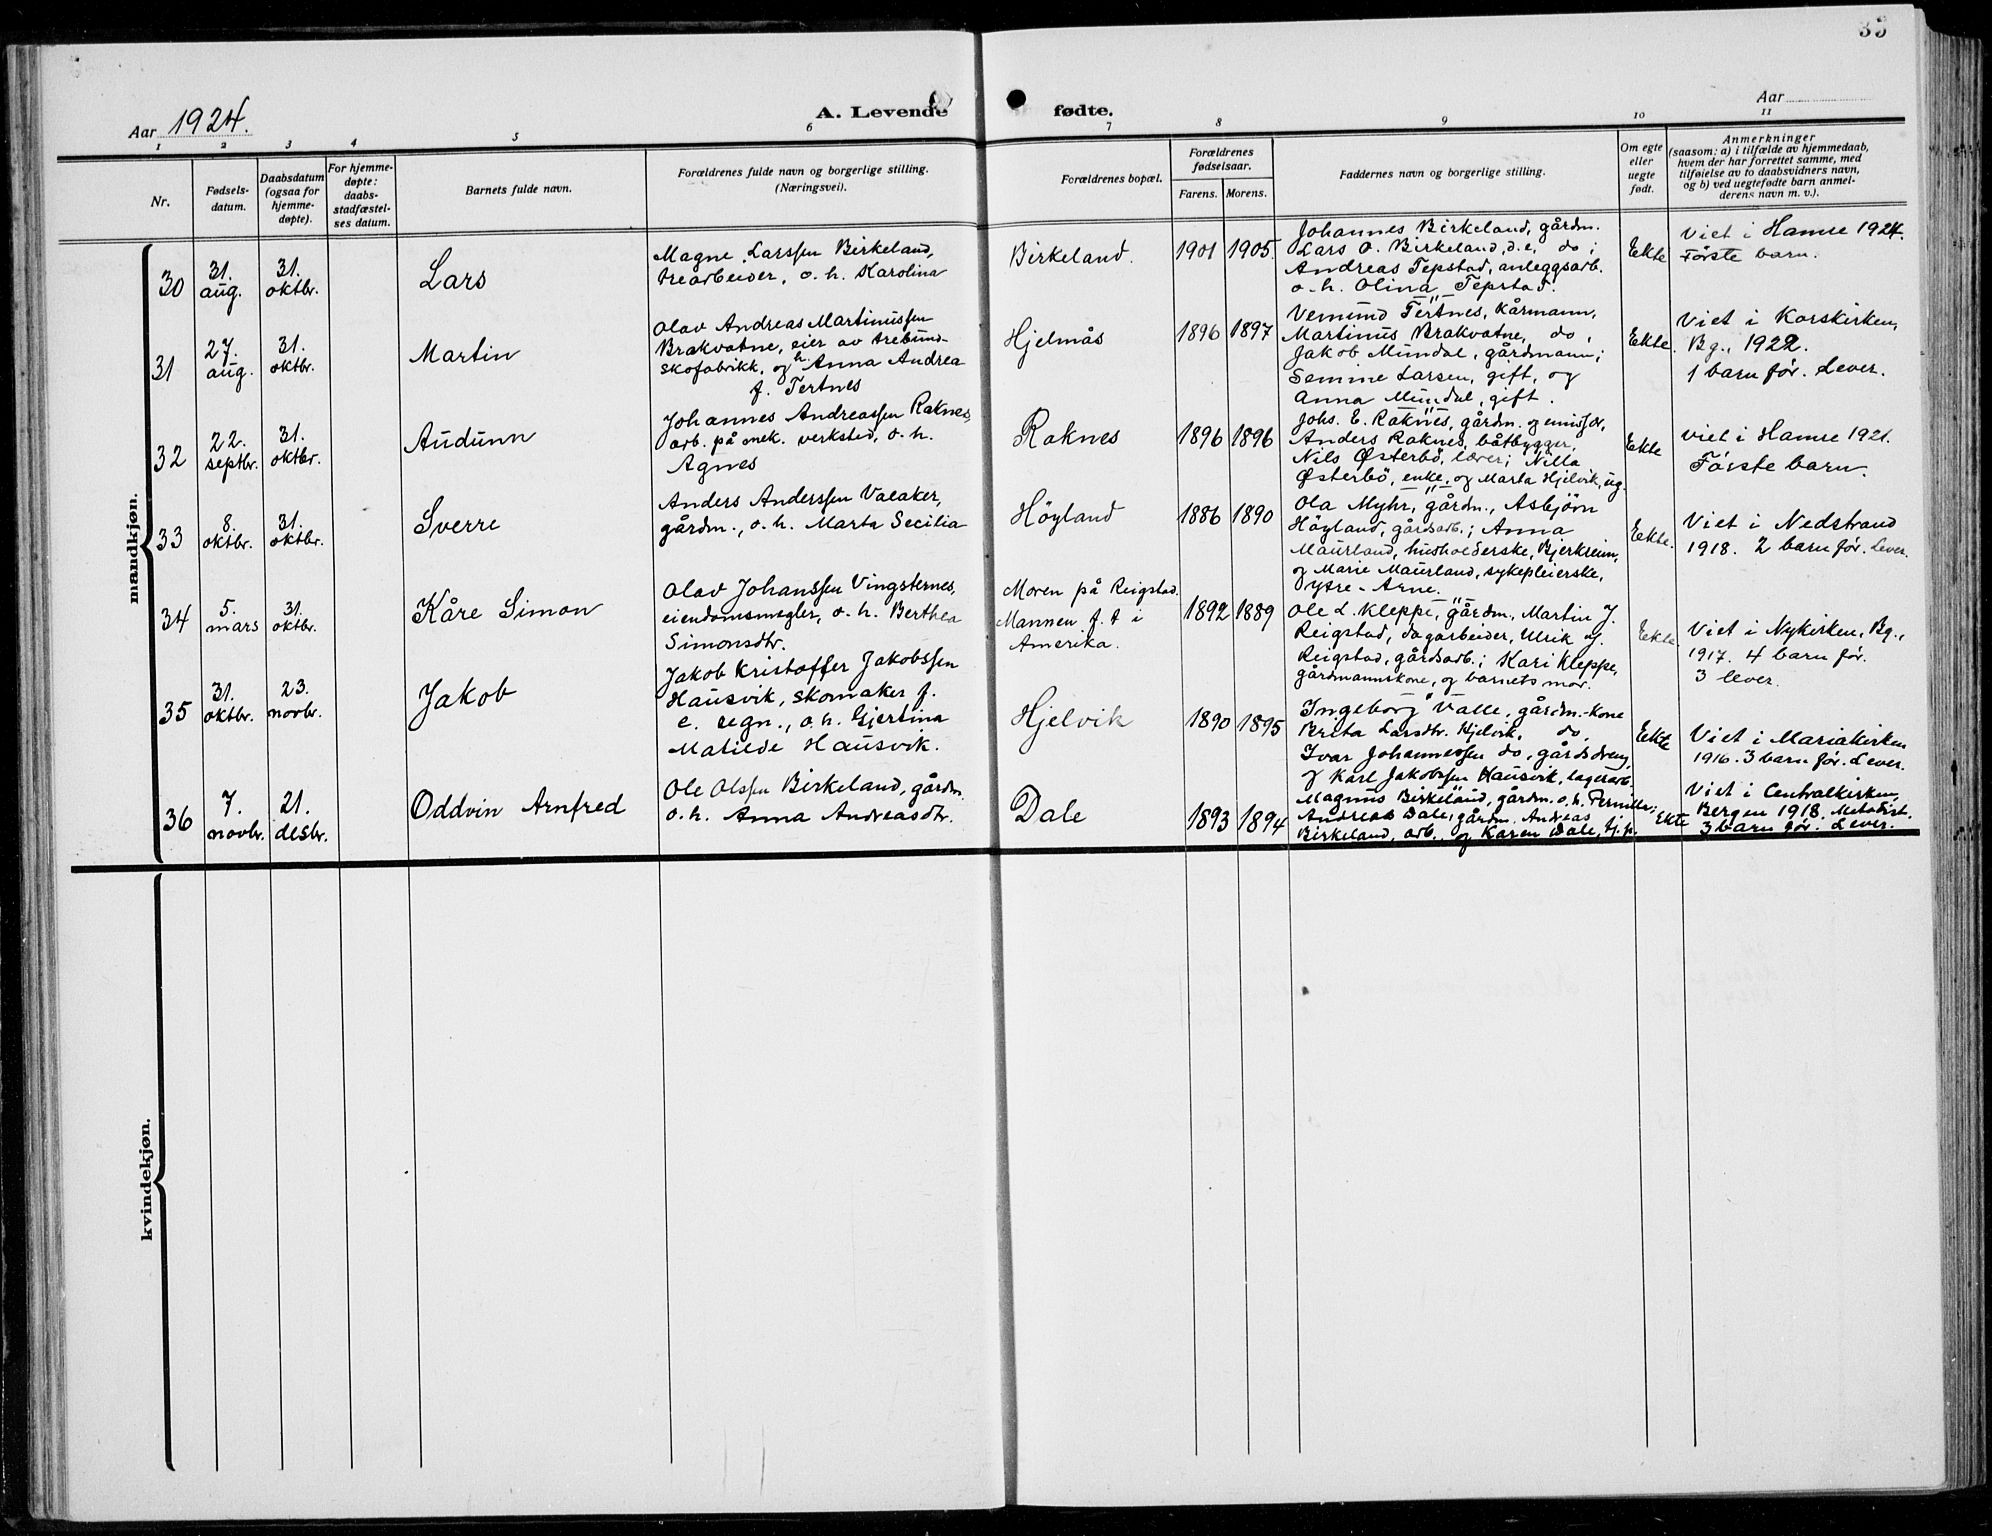 35
Aar 1924.
A. Levende fødte.
Aar
1 2 3 4 5 6 7 8 9 10 11
Nr.
Fødsels-
datum.
Daabsdatum
(ogsaa for
hjemme-
døpte).
For hjemme-
døpte:
daabs-
stadfæstel-
ses datum.
Barnets fulde navn.
Forældrenes fulde navn og borgerlige stilling.
(Næringsvei).
Forældrenes bopæl.
Forældrenes
fødselsaar.
Farens. Morens.
Faddernes navn og borgerlige stilling.
Om egte
eller
uegte
født.
Anmerkninger
(saasom: a) i tilfælde av hjemmedaab,
hvem der har forrettet samme, med
tilføielse av to daabsvidners navn,
og b) ved uegtefødte barn anmel-
derens navn m. v.).
mandkjøn.
30
31.
aug.
31.
oktbr.
Lars
Magne Larssen Birkeland,
trearbeider, o. h. Karolina
Birkeland.
1901 1905.
Johannes Birkeland, gårdm.
Lars O. Birkeland, d.e. do;
Andreas Tepstad, anleggsarb.
o. h. Olina Tepstad.
Ekte
Viet i Hamre 1924.
Første barn.
31
27.
aug.
31.
oktbr.
Martin
Olav Andreas Martinussen
Brakvatne, eier av trebund-
skofabrikk, og h. Anna Andrea
f. Tertnes
Hjelmås
1896 1897
Vemund Tertnes, kårmann,
Martinus Brakvatne, do,
Jakob Mundal, gårdmann;
Semine Larsen, gift, og
Anna Mundal, gift.
Ekte.
Viet i Korskirken,
Bg., 1922.
1 barn før. Lever.
32
22.
septbr.
31.
oktbr.
Audunn
Johannes Andreassen Raknes,
arb. på mek. verksted, o. h.
Agnes
Raknes
1896 1896
Johs. E. Raknes, gårdm. og emissær,
Anders Raknes, båtbygger,
Nils Østerbö, lærer; Nilla
Østerbö, enke, og Marta Hjelvik, ug.
Ekte
Viet i Hamre 1921.
Første barn.
33
8.
oktbr.
31.
oktbr.
Sverre
Anders Anderssen Valaker,
gårdm., o. h. Marta Secilia
Höyland
1886 1890
Ola Myhr, gårdm., Asbjørn
Höyland, gårdsarb.; Anna
Maurland, husholderske, Bjerkreim,
og Marie Maurland, sykepleierske,
Ytre-Arne.
Ekte.
Viet i Nedstrand
1918. 2 barn før. Lever.
34
5.
mars
31.
oktbr.
Kåre Simon
Olav Johanssen Vingsternes,
eiendomsmegler, o. h. Berthea
Simonsdtr.
Moren på Reigstad.
Mannen f. t i
Amerika.
1892 1889
Ole L. Kleppe, gårdm., Martin J.
Reigstad, dagarbeider, Ulrik J.
Reigstad, gårdsarb.; Kari Kleppe,
gårdmannskone, og barnets mor.
Ekte.
Viet i Nykirken, Bg.,
1917. 4 barn før.
3 lever.
35
31.
oktbr.
23.
novbr.
Jakob
Jakob Kristoffer Jakobssen
Hausvik, skomaker f.
e. regn., o. h. Gjertina
Matilde Hausvik.
Hjelvik
1890 1895
Ingeborg Valle, gårdm.-kone
Brita Larsdtr. Hjelvik, do,
Ivar Johannessen do, gårdsdreng,
og Karl Jakobssen Hausvik, lagerarb.
Ekte
Viet i Mariakirken
1916. 3 barn før. Lever.
36
7.
novbr.
21.
desbr.
Oddvin Arnfred
Ole Olssen Birkeland, gårdm.
o. h. Anna Andreasdtr.
Dale
1893 1894
Magnus Birkeland, gårdm. o. h. Pernille;
Andreas Dale, gårdm. Andreas
Birkeland, arb. og Karen Dale, tj. p.
Ekte
Viet i Centralkirken,
Bergen 1918. Metodist.
3 barn før. Lever.
kvindekjøn.